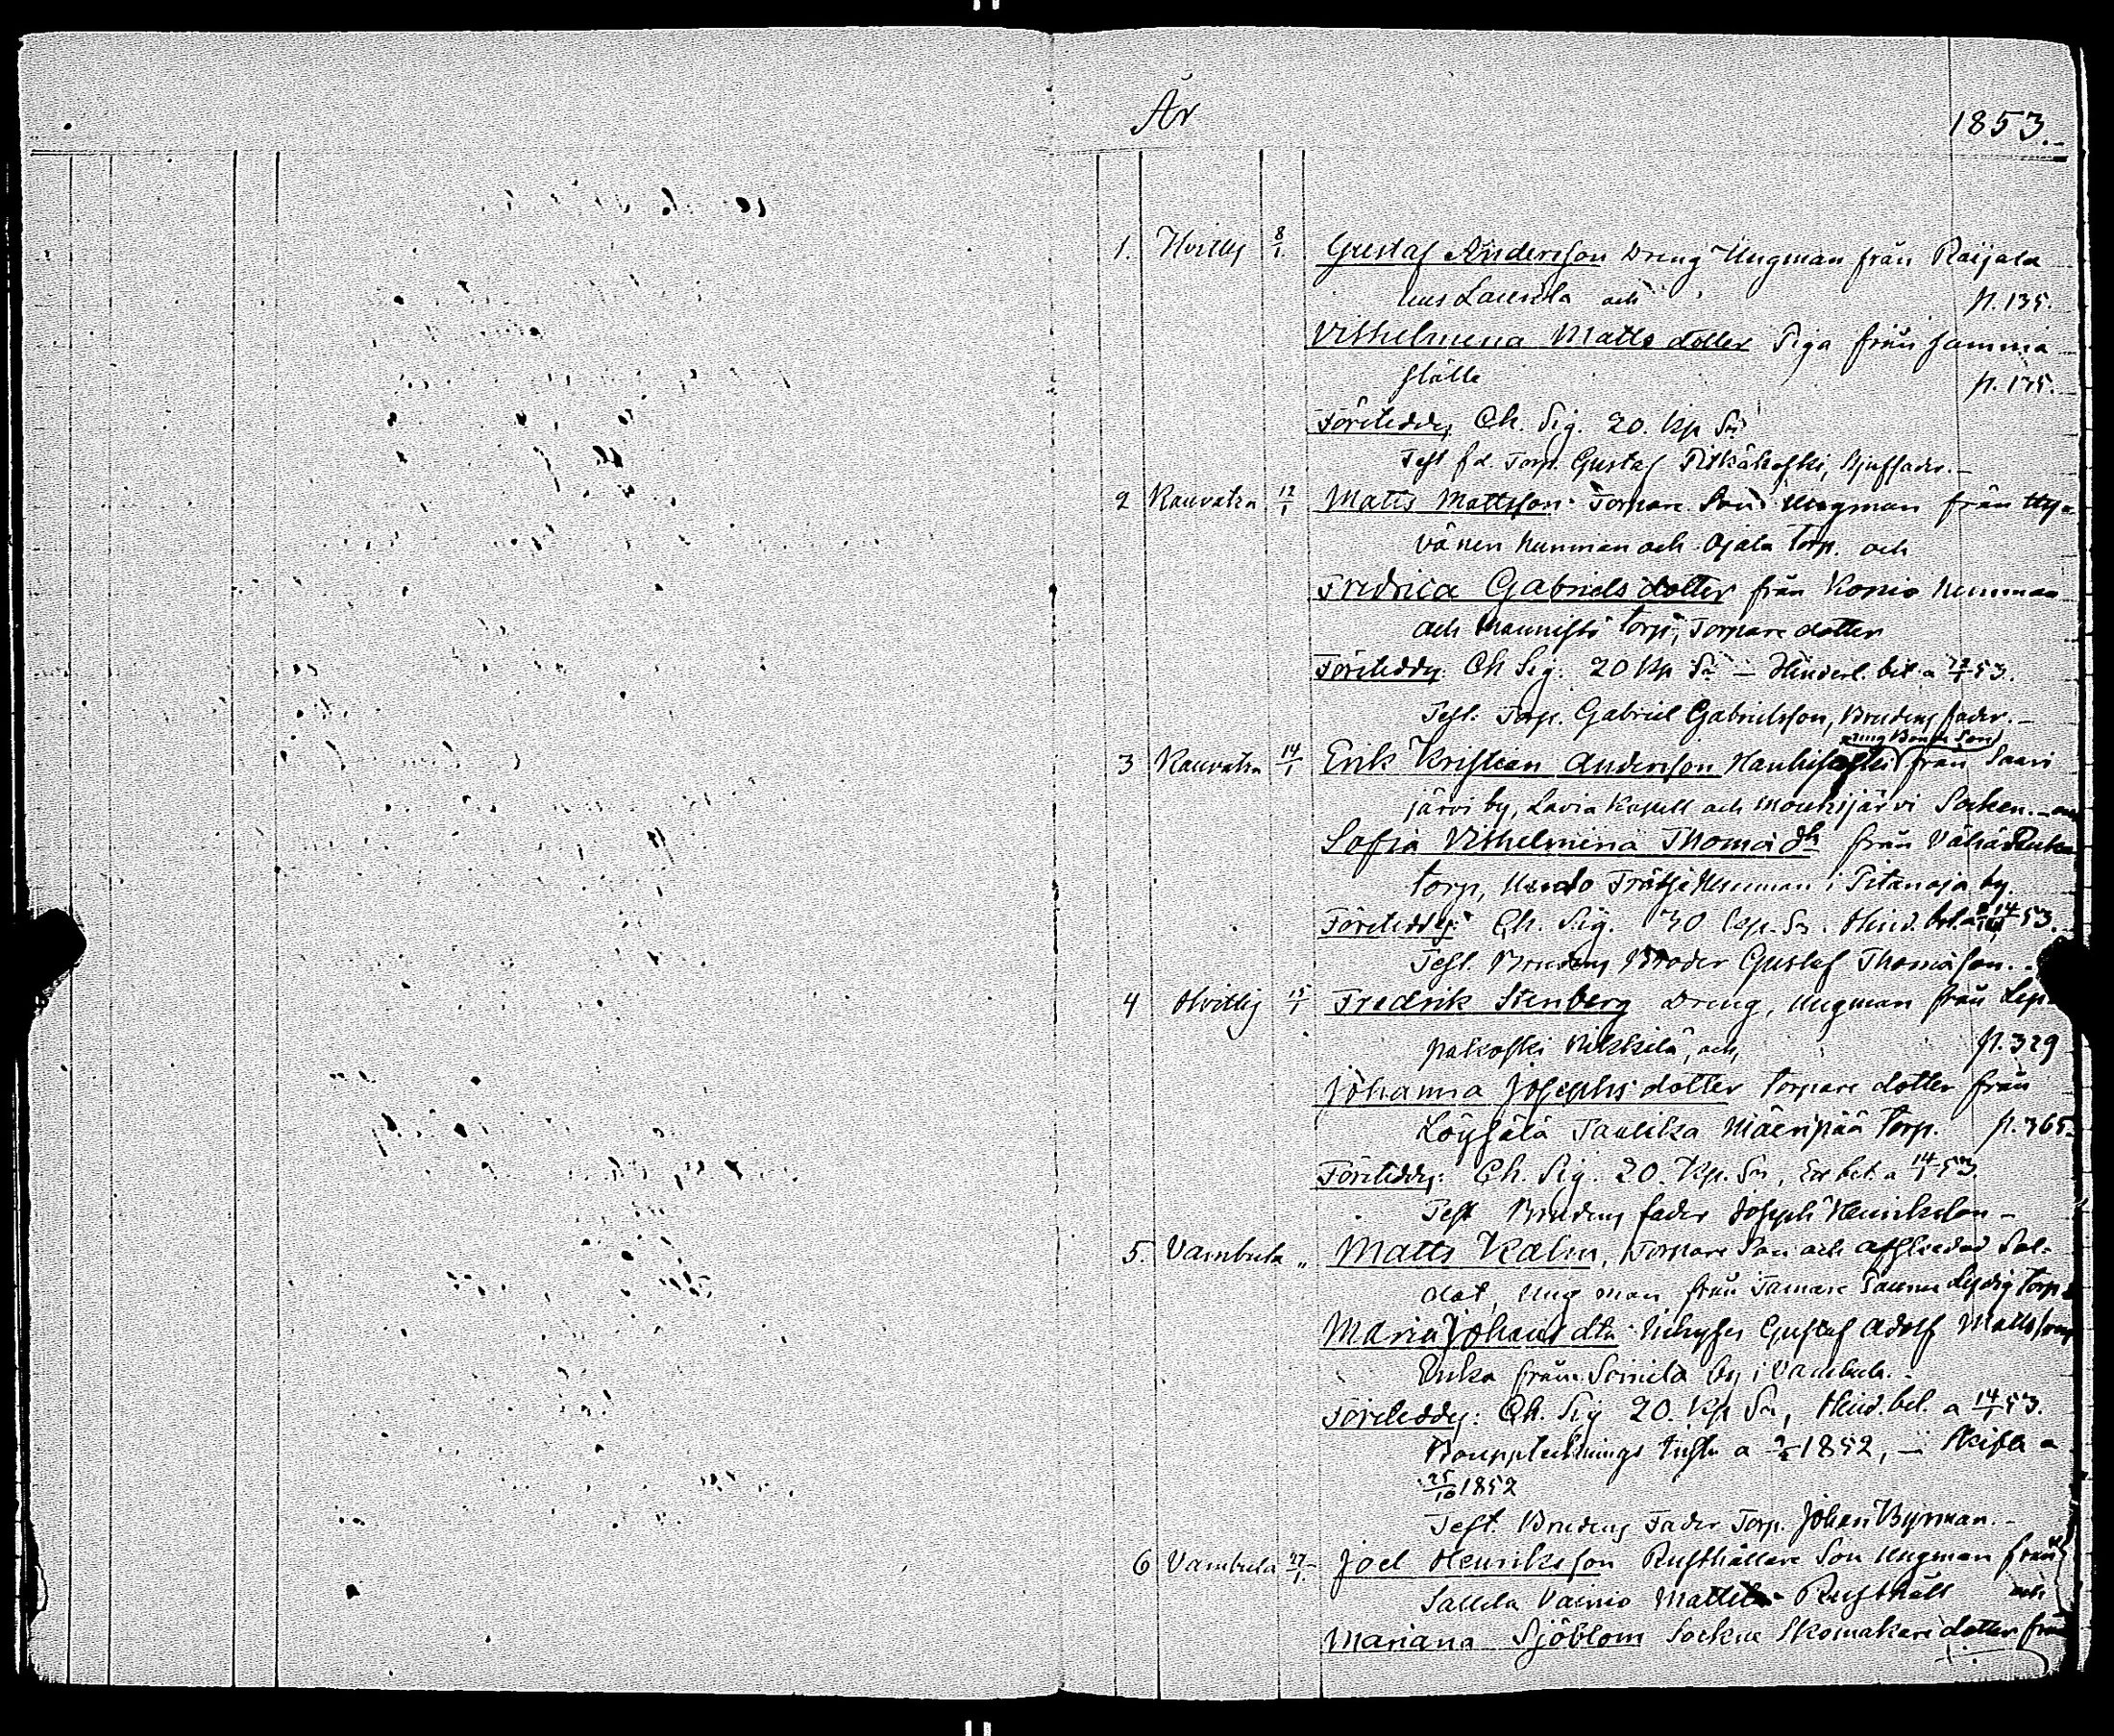 År 1853.
1. Hvittis 8/1 Gustaf Andersson Dreng Ungman från Raijala
hus Laurila och p. 135.
Vilhelmina Matts dotter Piga från samma
ställe p. 135.
Företeddes Ch. Sig. 20. kp Sr
Test f d. Torp. Gustaf Pitkäkoski, Stjuffader.
2 Kauvatsa 12/1 Matts Mattsson Torpare Son Ungman från
hemman och Ojala torp. och
Fredrica Gabriels dotter från Konio hemman
och Mannistö torp, Torpare dotter
Företeddes: Ch Sig. 20 kp Sr — Hinderl. bet. a 12/1 53.
Test. Torp. Gabriel Gabrielsson, Brudens fader. —
3 Kauvatsa 14/1 Erik Kristian Andersson från Saari
järvi by, Lavia Kapell och Mouhijärvi Socken. —
Sofia Vilhelmina Thomä dtr från Vähä
torp, hemman i Pitänoja by.
Företeddes: Ch. Sig. 30 kp. Sr. Hind. bet. a 14/1 53.
Test. Brudens Broder Gustaf Thomasson.
4 Hvittis 15/1 Fredrik Stenberg Dreng, Ungman från Lep
pakoski Nikkilä, och, p. 329
Johanna Josephs dotter torpare dotter från
Löysälä Taulika Mäenpää torp. p. 365.
Företeddes: Ch. Sig. 20. Kp. Sr, bet. a 14/1 53.
Test Brudens fader Joseph Henriksson —
5. Vambula „ Matts Kalm, Torpare Son och afskedad Sol-
dat, Ung man från Tamare torp
Maria Johans dtr Gustaf Adolf Mattssons
Enka från Soinila by i Vambula.
Företeddes: Ch. Sig 20. kp Sr, Hind. bet. a 14/1 53.
Boupptecknings 1852, — Skifte a
25/10 1852
Test. Brudens Fader Torp. Johan Byman. —
6 Vambula 27/1 Joel Henriksson Rusthållare Son Ungman från
Sallila Vainio Mattila Rusthåll och
Mariana Sjöblom Sockne Skomakare dotter från